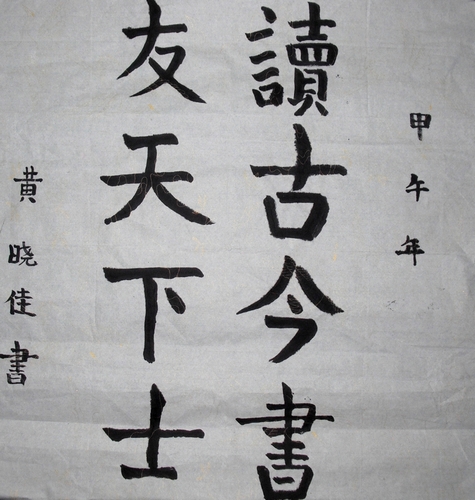 甲午年
讀古今書
友天下士
黄晓佳書